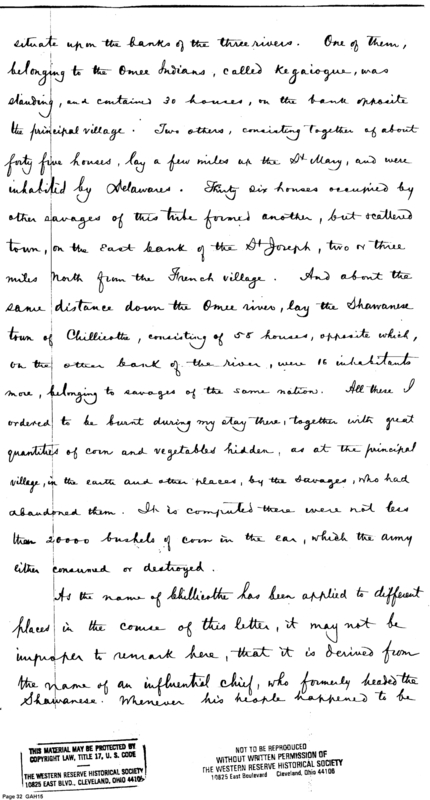 situate upon the banks of the three rivers. One of them,
belonging to the Omee Indians, called Kegaiogue, was
standing, and contained 30 houses, on the bank opposite
the principal village. Two others, consisting together of about
forty five houses, lay a few miles up the St Mary, and were
inhabited by Delawares. Thirty six houses occupied by
other savages of this tribe formed another, but scattered
town, on the East bank of the St Joseph, two or three
miles North from the French village. And about the
same distance down the Omee river, lay the Shawanese
town of Chillicothe, consisting of 58 houses, opposite which,
on the other bank of the river, were 16 inhabitants
more, belonging to savages of the same nation. All these I
ordered to be burnt during my stay there, together with great
quantities of corn and vegetables hidden, as at the principal
village, in the earth and other places, by the savages, who had
abandoned them. It is computed there were not less
than 20000 bushels of corn in the ear, which the army
either consumed or destroyed.
As the name of Chillicothe has been applied to different
places in the course of this letter, it may not be
improper to remark here, that it is derived from
the name of an influential chief, who formerly headed the
Shawanese. Whenever his people happened to be
THIS MATERIAL MAY BE PROTECTED BY
COPYRIGHT LAW, TITLE 17, U. S. CODE
THE WESTERN RESERVE HISTORICAL SOCIETY
10825 EAST BLVD., CLEVELAND, OHIO 44106
NOT TO BE REPRODUCED
WITHOUT WRITTEN PERMISSION OF
THE WESTERN RESERVE HISTORICAL SOCIETY
10825 East Boulevard Cleveland, Ohio 44106
Page 32 GAH16